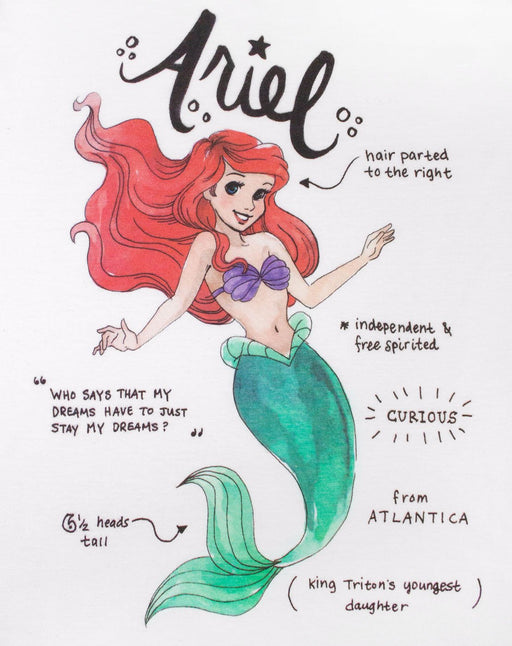 Ariel
hair parted
to the right
* independent &
free spirited
“ WHO SAYS THAT MY
DREAMS HAVE TO JUST
STAY MY DREAMS? ”
CURIOUS
from
ATLANTICA
6½ heads
tall
( King Triton's youngest
daughter )